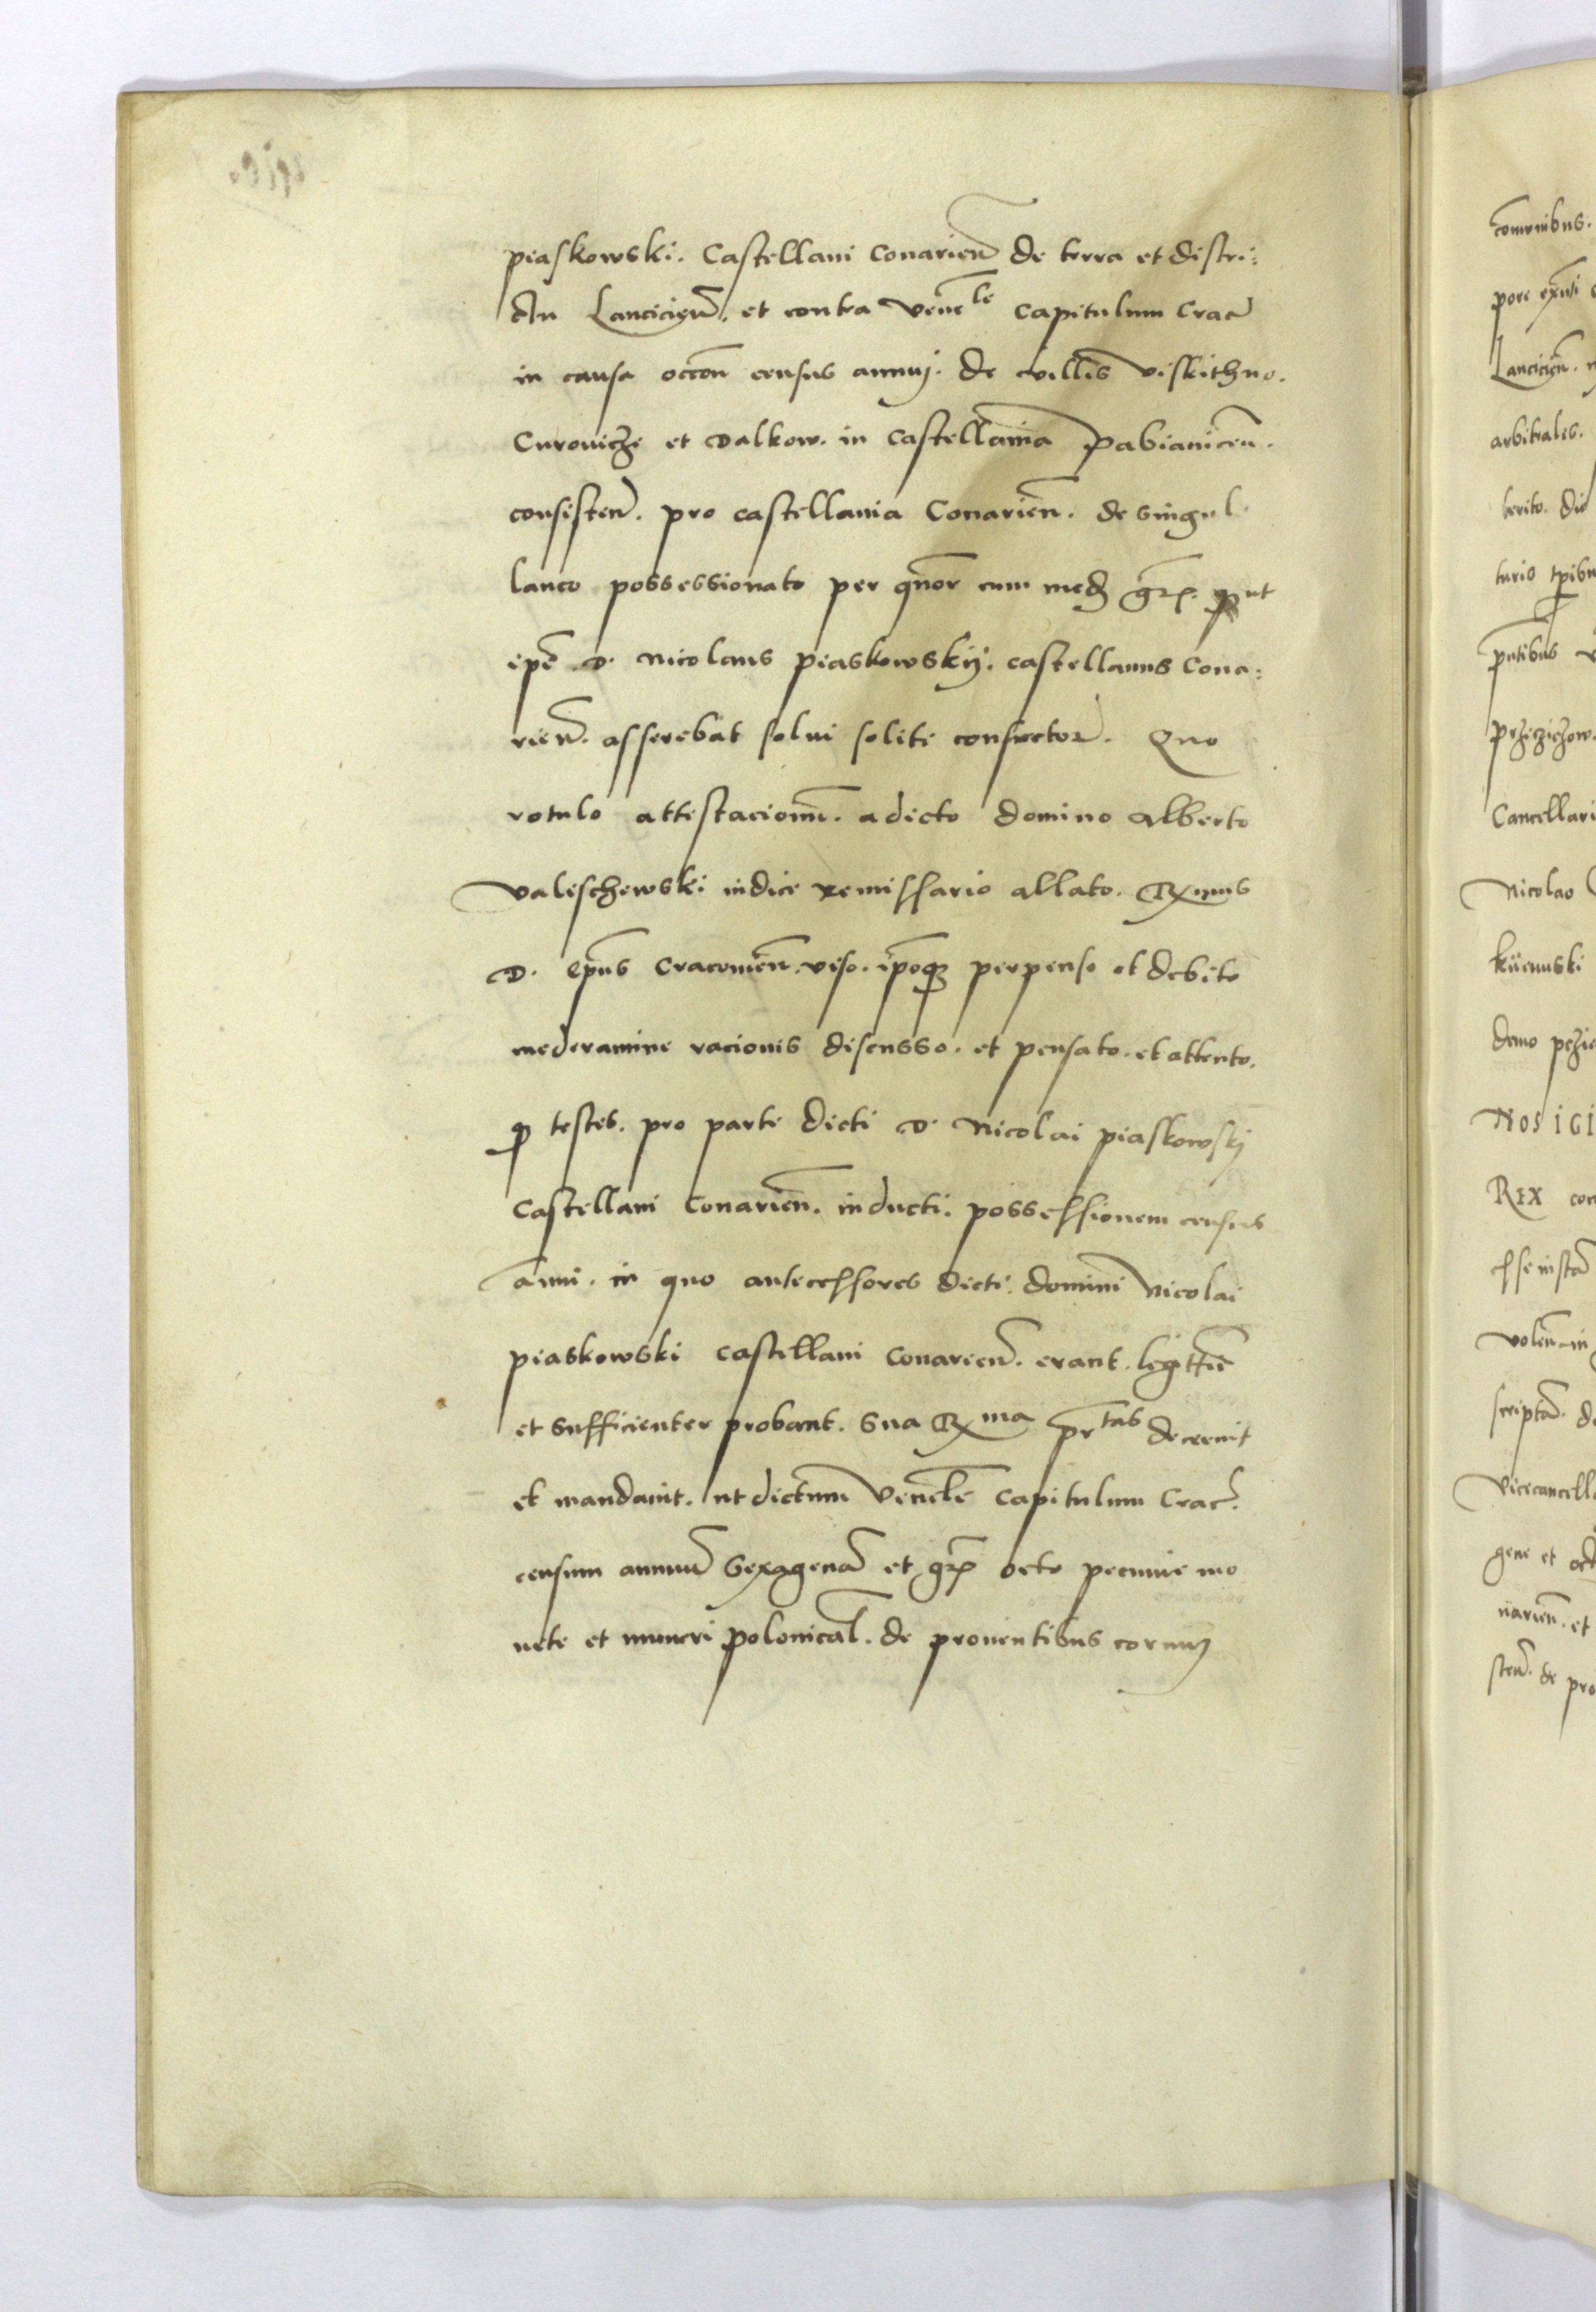 piaskowski. Castellani Conarien̄ de terra et distri:
ctu Lanciciēn. et contra Venele capitulum Crac̄
in causa occōn census annuj. de villis Viskithno.
Curovicze et Dalkow. in castellania Pabianicen̄.
consisten̄. pro castellania Conarien̄. de singul
lanco possessionato per qūor cum med gr̄. put
ipē D. Nicolaus piaskowskij. castellanus Cona:
rien̄. asserebat solui soliti confector̄. Quo
rotulo attestacionū. a dicto domino Alberto
Valeschewski iudice remissario allato. Rxmus
D. Epūs Cracouien̄. viso. ip̄oqȝ perpenso et debito
mederamine racionis discusso. et pensato. et attento.
ꝙ testes. pro parte dicti D. Nicolai piaskowskj
Castellani Conarien̄. inducti. possessionem census
annui. in quo antecessores dicti. domini Nicolai
piaskowski castellani Conarien̄. erant. legittīe
et sufficienter probant. Sua Rxma pr̄tas decreuit
et mandauit. ut dictum Venele Capitulum Crac̄.
censum annuū sexagenā et gr̄ octo pecunie mo
nete et nuneri polonical̄. de prouentibus eorum
comunibus.
pore
Lanciciēn.
arbitrales.
turis
Cancellari
Nicolao
demo
NOS IGI
REX con
volen̄ in
Vicecancella
gene et
narien̄. et
sten̄. de pro